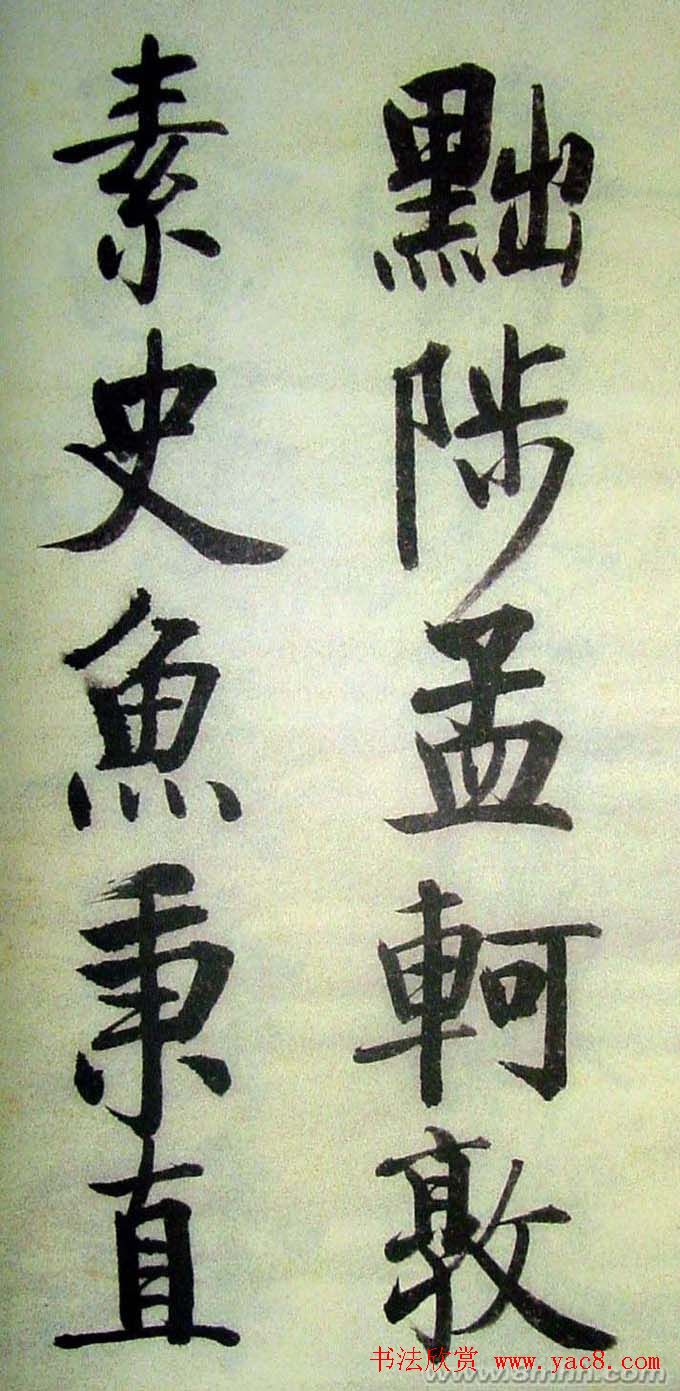 黜陟孟軻敦
素史魚秉直
书法欣赏 www.yac8.com